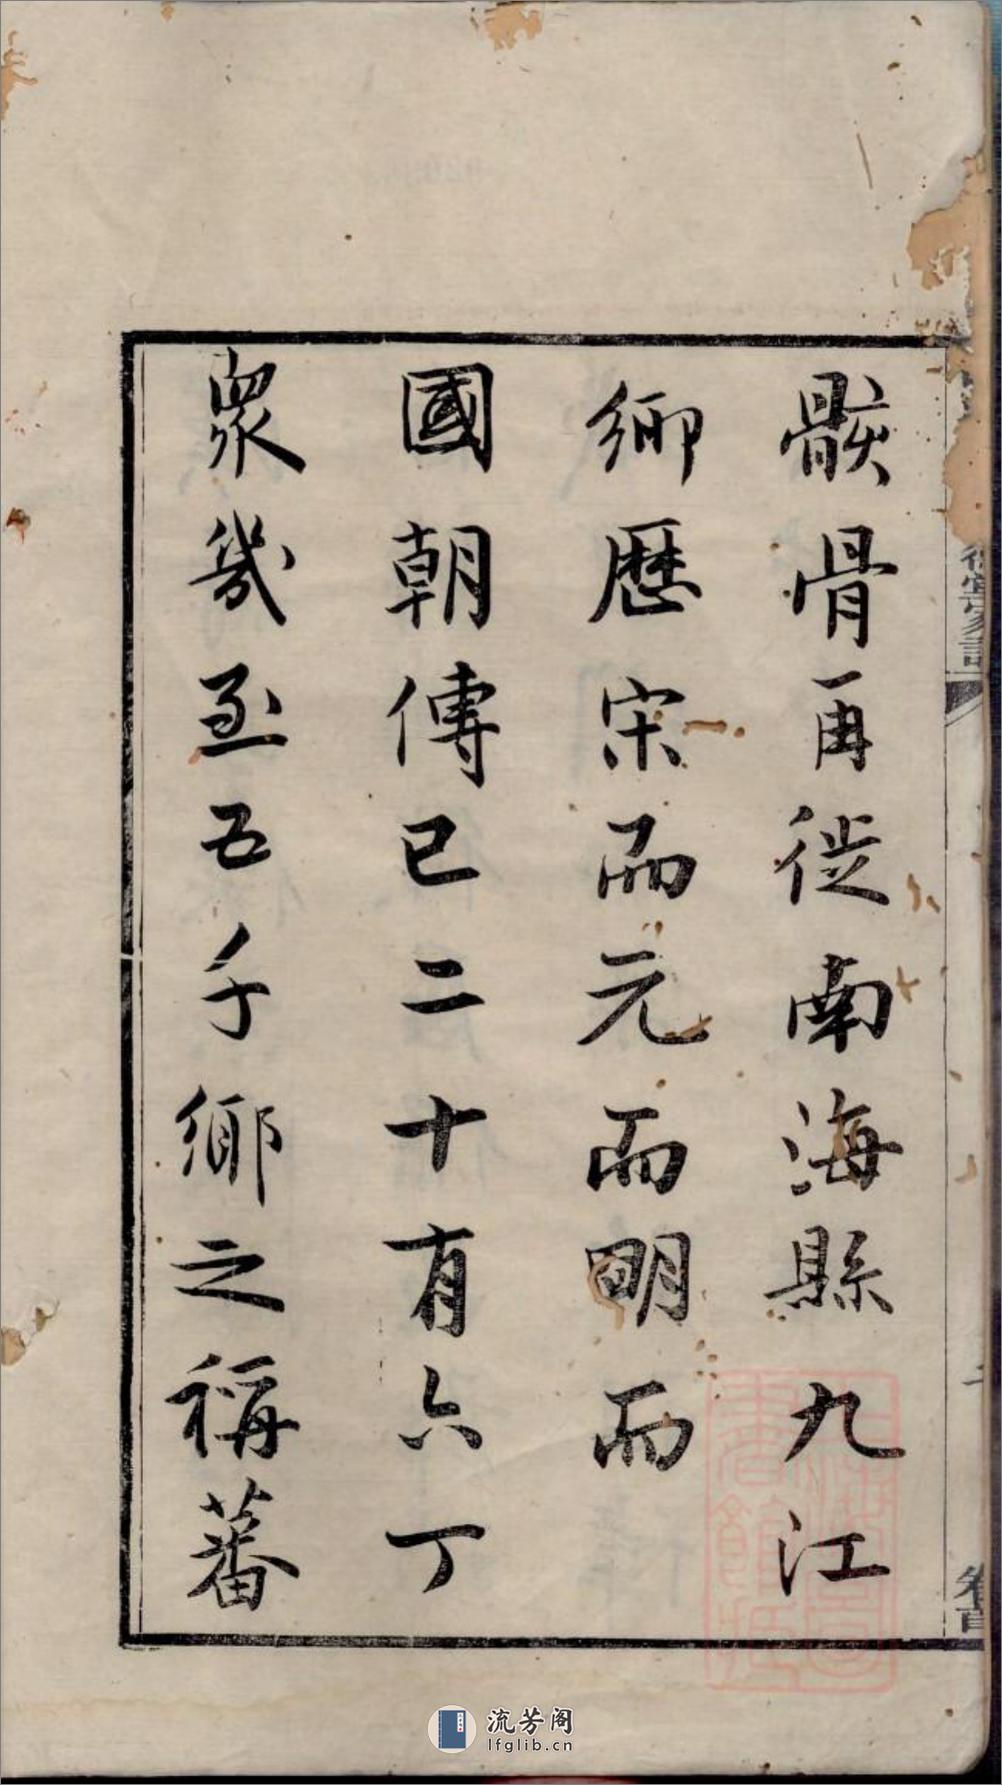 骸骨再徙南海縣九江
鄉歷宋而元而明而
國朝傳已二十有六丁
衆幾至五千鄉之稱蕃
家譜
卷首
流芳阁
lfglib.cn